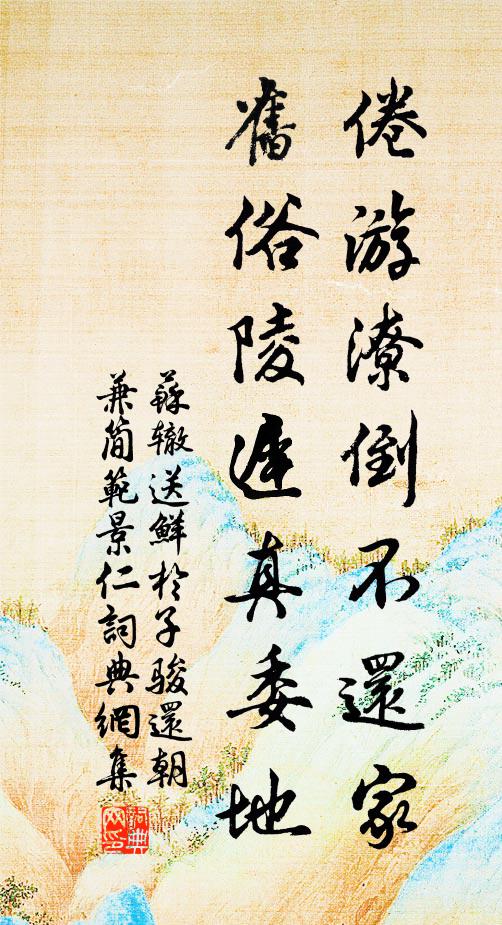 倦游潦倒不還家
舊俗陵遲真委地
蘇辙送鮮於子駿還朝
兼简範景仁詞典網集
詞典
网印